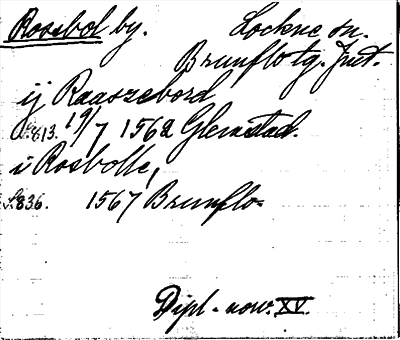 Rossbol by. Lockne sn.
Brunflo tg. Jmt.
ij Raaszebord
s. 813. 19/7 1562 Glemstad.
i Rosbolle,
s. 836. 1567 Brunflo.
Dipl. norv. XV.